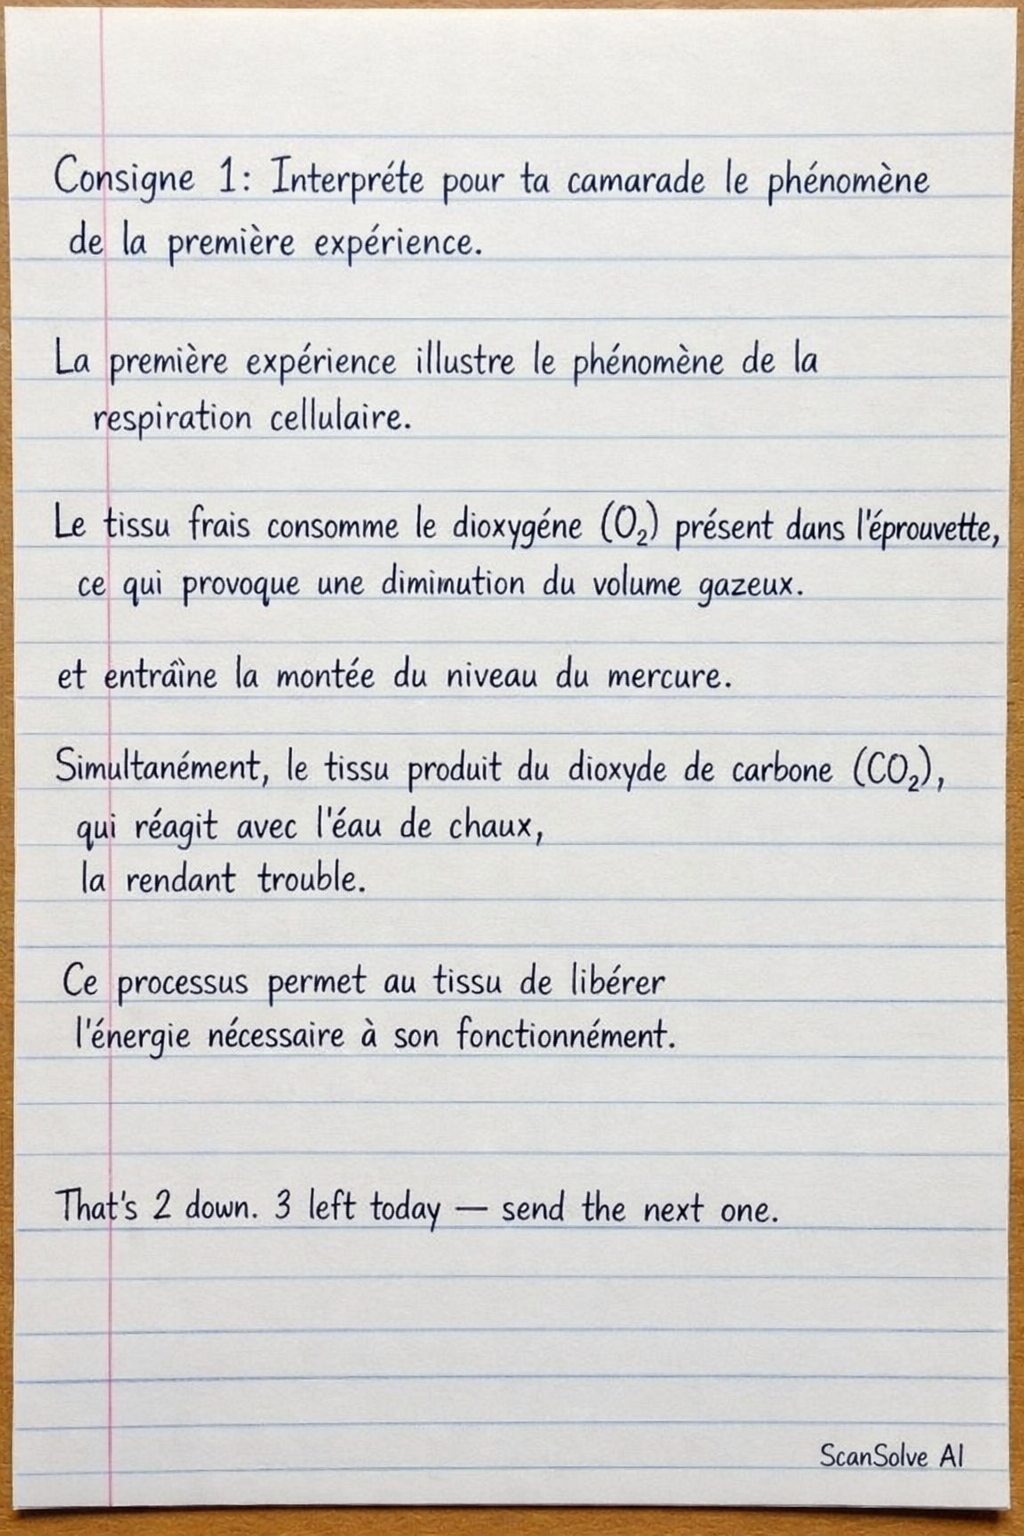 Consigne 1: Interpréte pour ta camarade le phénomène
de la première expérience.
La première expérience illustre le phénomène de la
respiration cellulaire.
Le tissu frais consomme le dioxygéne (O₂) présent dans l'éprouvette,
ce qui provoque une dimimution du volume gazeux.
et entraîne la montée du niveau du mercure.
Simultanément, le tissu produit du dioxyde de carbone (CO₂),
qui réagit avec l'éau de chaux,
la rendant trouble.
Ce processus permet au tissu de libérer
l'énergie nécessaire à son fonctionnément.
That's 2 down. 3 left today — send the next one.
ScanSolve AI